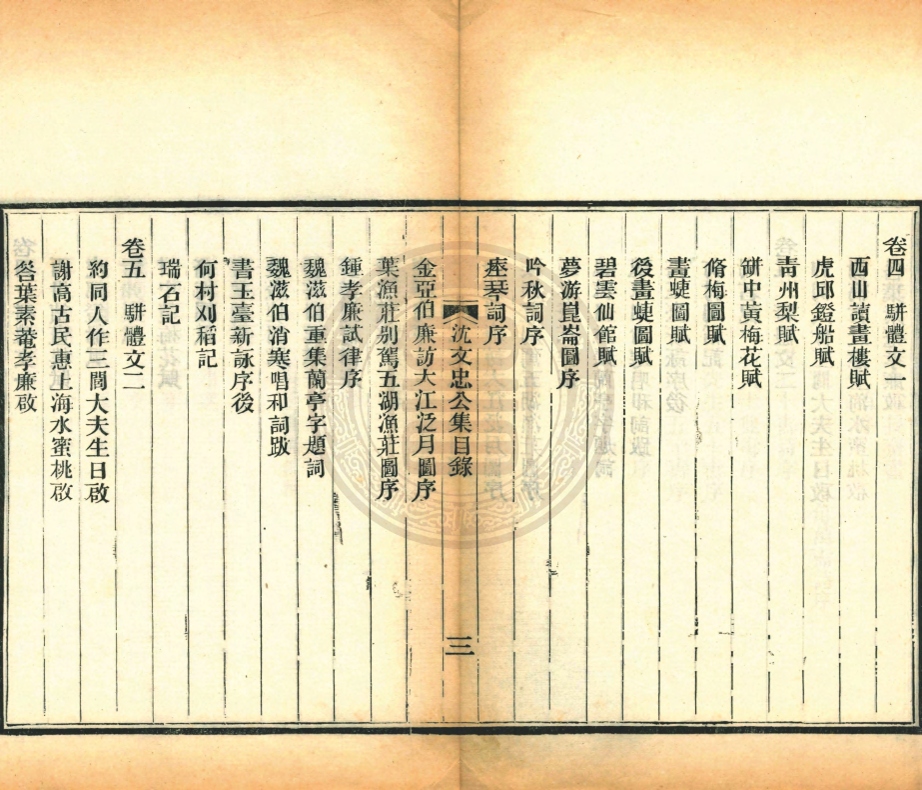 卷四　駢體文一
西山讀畫樓賦
虎邱鐙船賦
靑州梨賦
缾中黃梅花賦
脩梅圖賦
畫蜨圖賦
後畫蜨圖賦
碧雲仙館賦
夢游崑崙圖序
吟秋詞序
瘞琴詞序
沈文忠公集目錄
三
金亞伯廉訪大江泛月圖序
葉漁莊别駕五湖漁莊圖序
鍾孝廉試律序
魏滋伯重集蘭亭字題詞
魏滋伯消寒唱和詞跋
書玉臺新詠序後
何村刈稻記
瑞石記
卷五　駢體文二
約同人作三閭大夫生日啟
謝高古民惠上海水蜜桃啟
答葉素菴孝廉啟